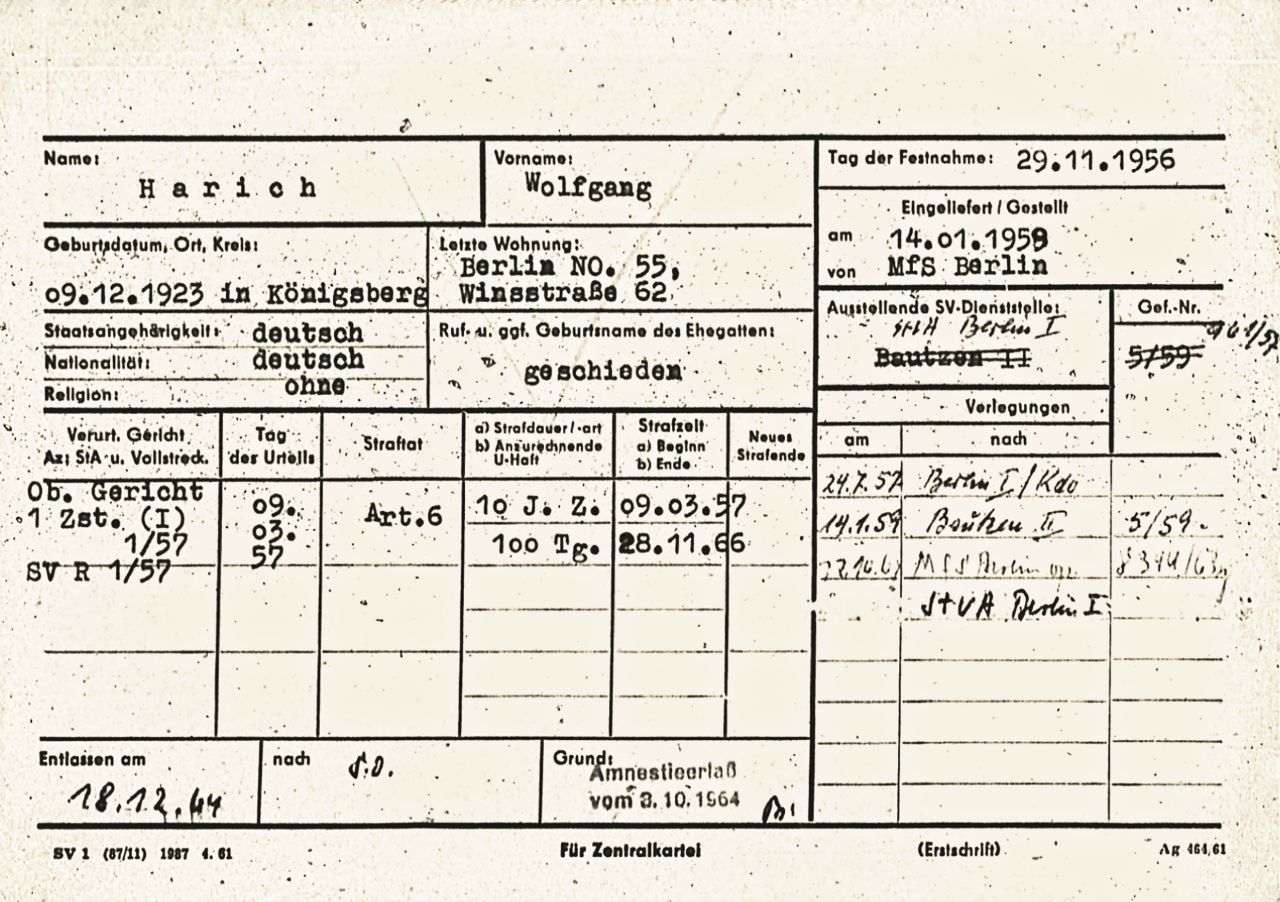 Name:
H a r i c h
Vorname:
Wolfgang
Tag der Festnahme: 29.11.1956
Eingeliefert / Gestellt
am 14.01.1959
von MfS Berlin
Geburtsdatum, Ort, Kreis:
09.12.1923 in Königsberg
Letzte Wohnung:
Berlin NO. 55,
Winsstraße 62
Staatsangehörigkeit: deutsch
Nationalität: deutsch
Religion: ohne
Ruf- u. ggf. Geburtsname des Ehegatten:
geschieden
Ausstellende SV-Dienststelle:
Berlin I
Bautzen II
Gef.-Nr.
5/59
Verlegungen
am nach
24.7.57 Berlin I / Kdo
14.1.59 Bautzen II 5/59.
MfS Berlin
StVA Berlin I
Verurt. Gericht
Az: StA u. Vollstreck.
Tag
des Urteils
Straftat
a) Strafdauer/-art
b) Anzurechnende
U-Haft
Strafzeit
a) Beginn
b) Ende
Neues
Strafende
Ob. Gericht
1 Zst. (I)
1/57
SV R 1/57
09.
03.
57
Art.6
10 J. Z. 09.03.57
100 Tg. 28.11.66
Entlassen am
18.12.64
nach
Grund:
Amnestieerlaß
vom 3.10.1964
SV 1 (87/11) 1987 4.61
Für Zentralkartei
(Erstschrift)
Ag 464/61